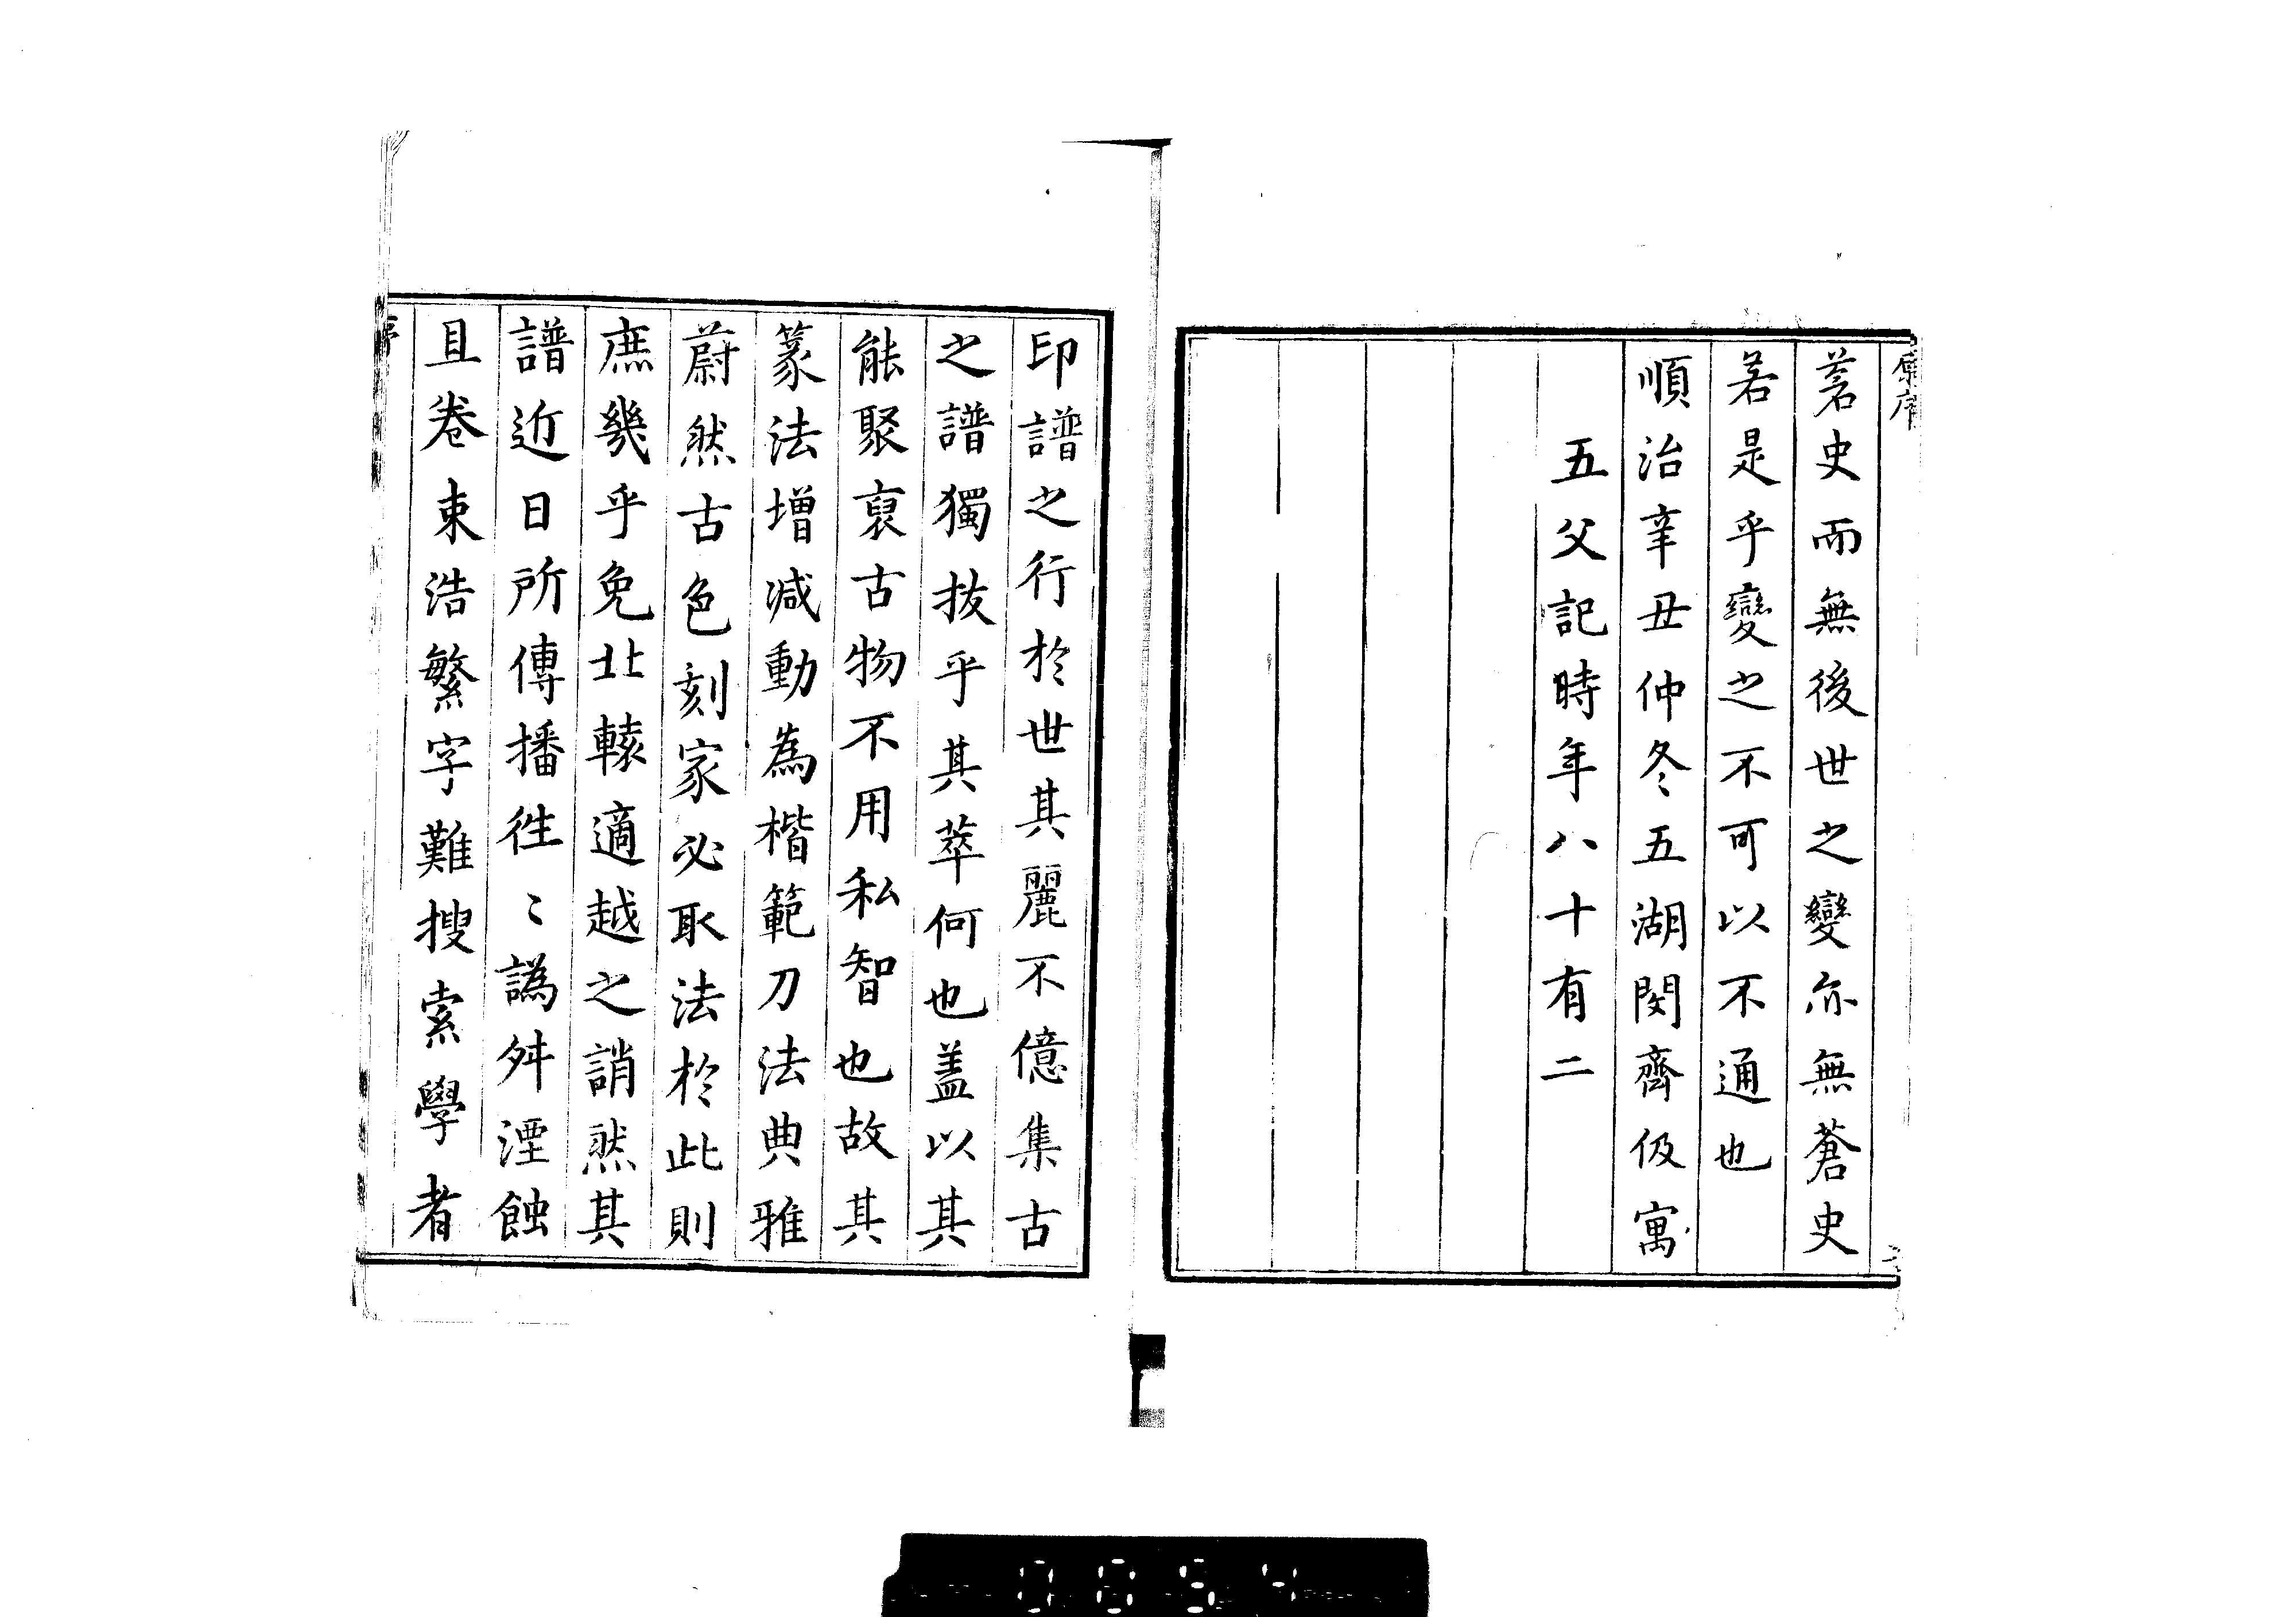 原序
蒼史而無後世之變亦無蒼史
若是乎變之不可以不通也
順治辛丑仲冬五湖閔齊伋寓
五父記時年八十有二
印譜之行於世其麗不億集古
之譜獨拔乎其萃何也盖以其
能聚裒古物不用私智也故其
篆法增减動為楷範刀法典雅
蔚然古色刻家必取法於此則
庶幾乎免北轅適越之誚然其
譜近日所傳播徃〻譌舛湮蝕
且卷束浩繁字難搜索學者
序